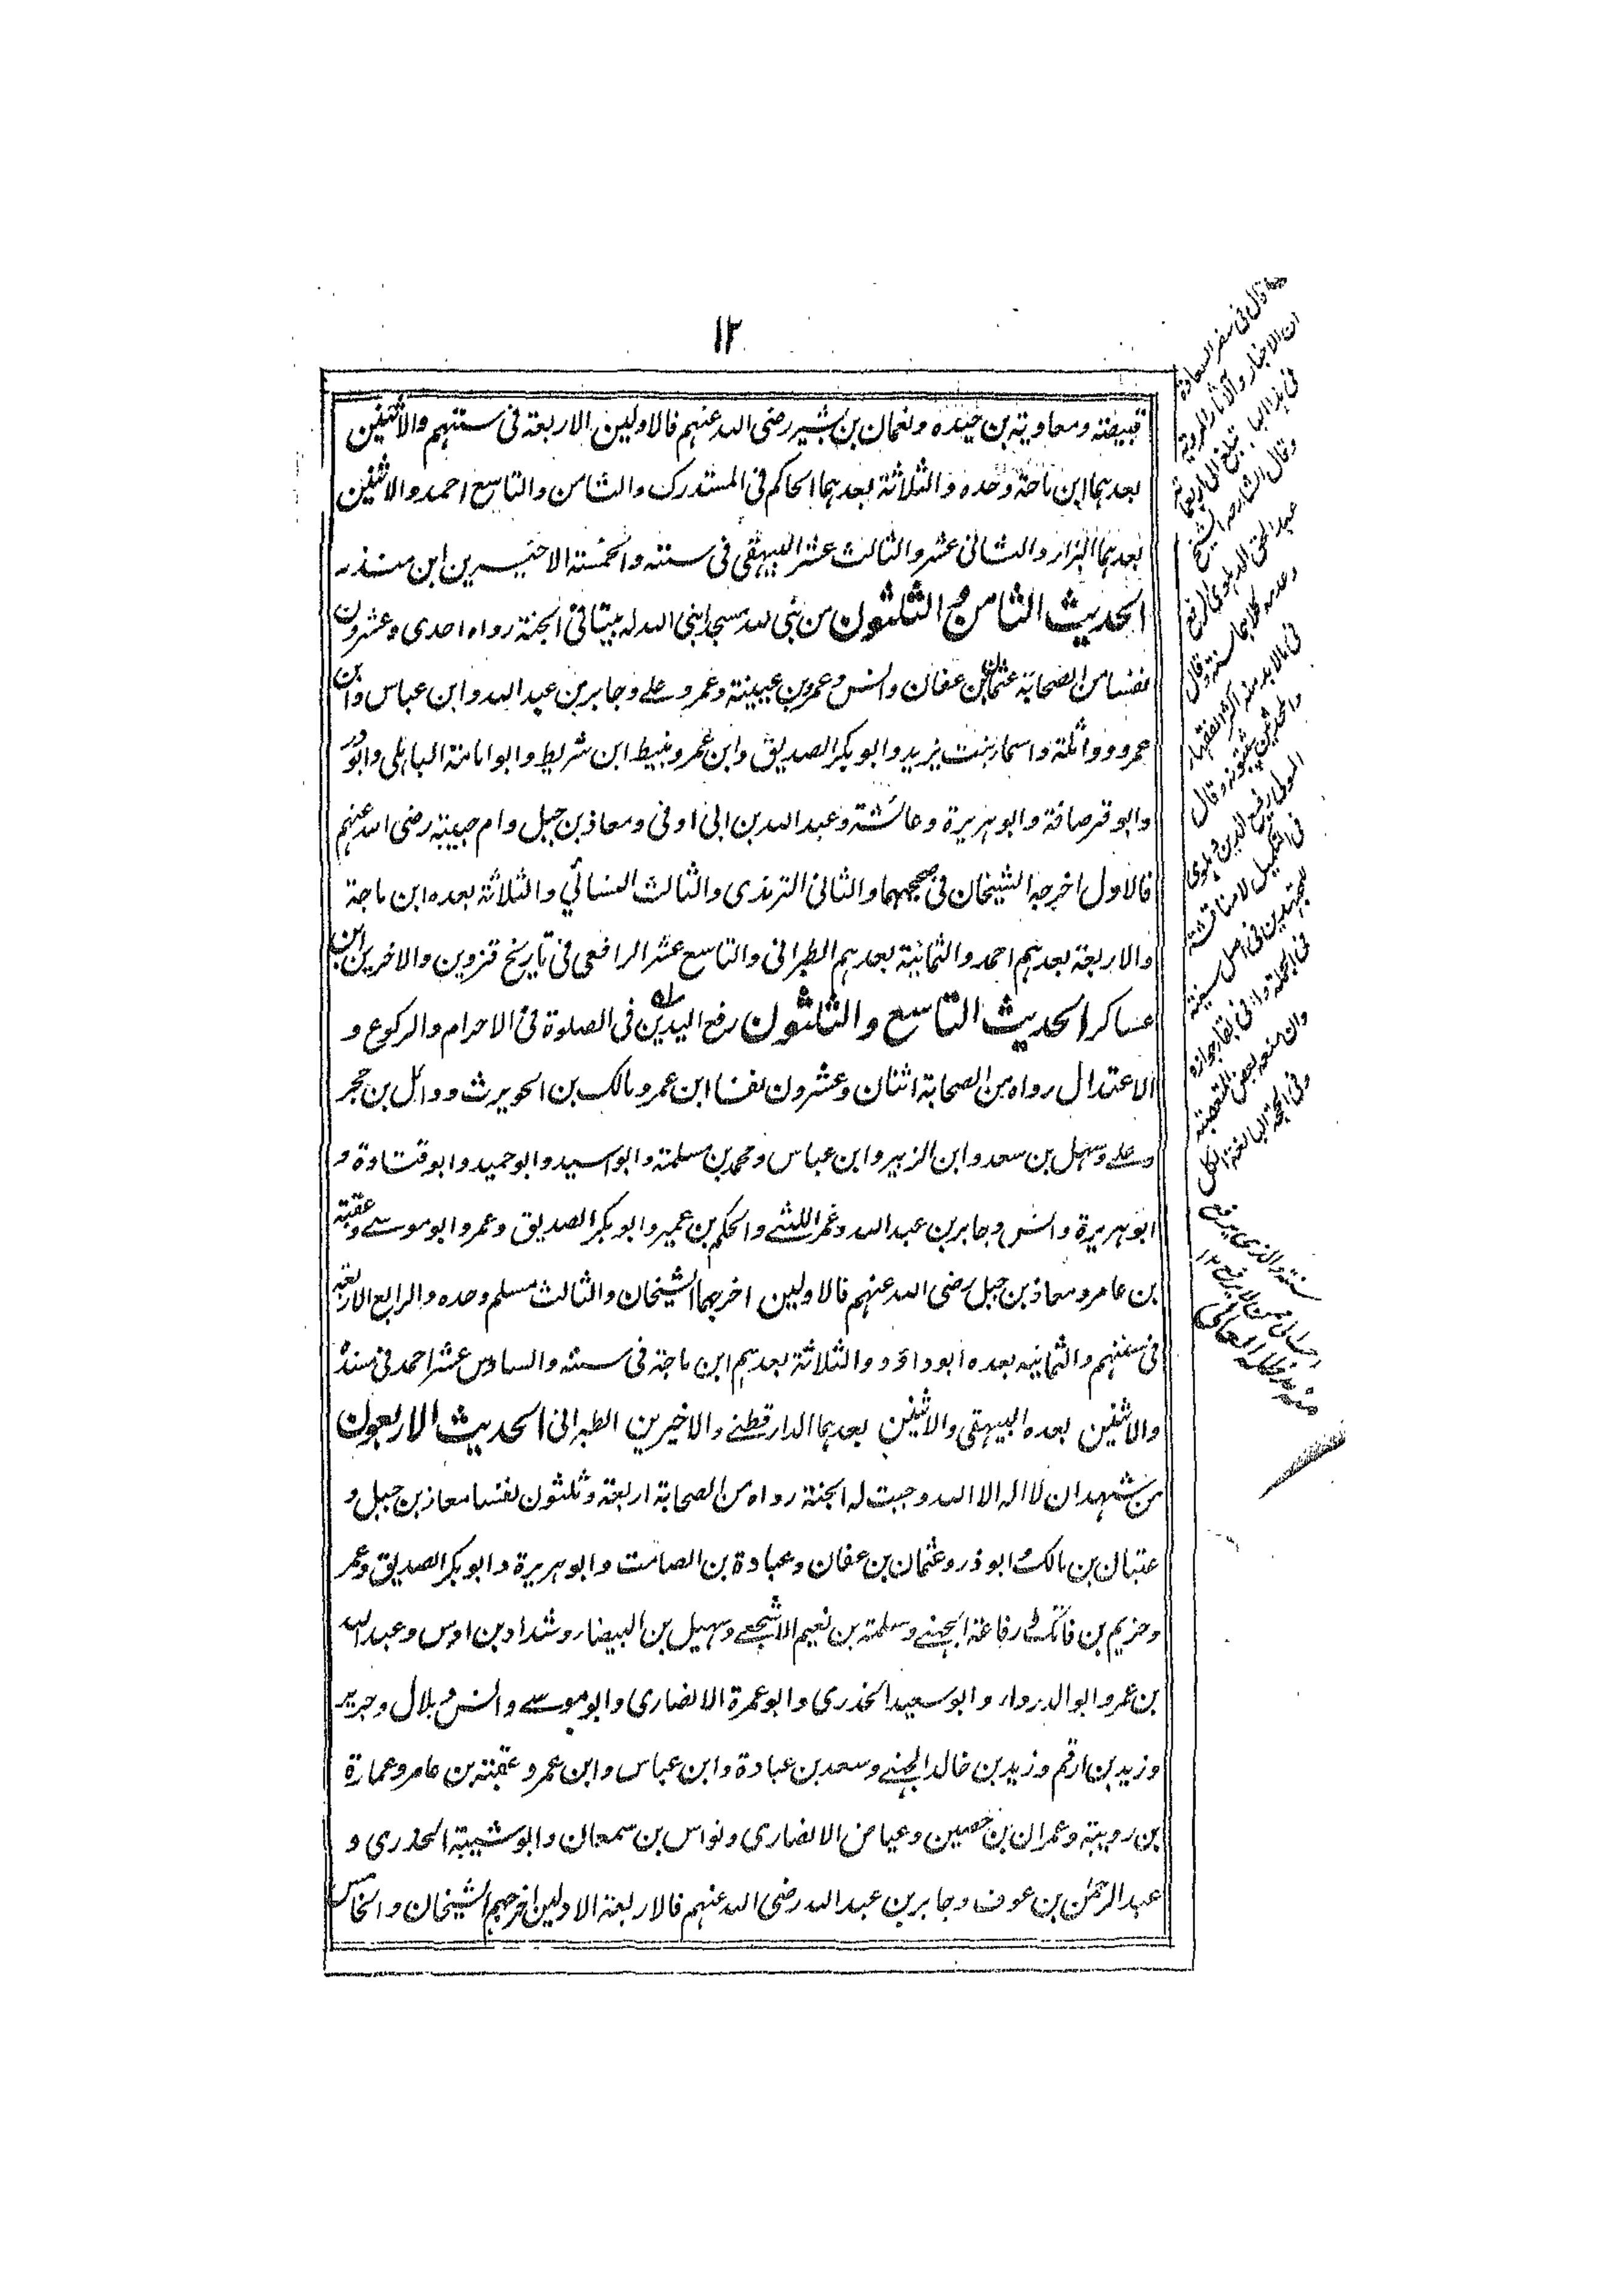 ١٢
قبيضة ومعاوية بن حيدة ونعمان بن بشير رضى الله عنهم فالاولين الاربعة فى سننهم والاثنين
بعدهما ابن ماجة وحده والثلاثة بعدهما الحاكم فى المستدرك والثامن والتاسع احمد والاثنين
بعدهما البزار والثانى عشر والثالث عشر البيهقى فى سننه والخمسة الاخيرين ابن منذر
الحديث الثامن والثلثون من بنى لله مسجدا بنى الله له بيتا فى الجنة رواه احدى وعشرون
نفسا من الصحابة عثمان بن عفان وانس وعمرو بن عيينة وعمر وعلى وجابر بن عبد الله وابن عباس وابن
عمرو وواثلة واسماء بنت يزيد وابو بكر الصديق وابن عمر ونبيط ابن شريط وابو امامة الباهلى وابو ذر
وابو قرصافة وابو هريرة وعائشة وعبد الله بن ابى اوفى ومعاذ بن جبل وام حبيبة رضى الله عنهم
فالاول اخرجه الشيخان فى صحيحهما والثانى الترمذى والثالث النسائي والثلاثة بعده ابن ماجة
والاربعة بعدهم احمد والثمانية بعدهم الطبرانى والتاسع عشر الرافعى فى تاريخ قزوين والاخرين ابن
عساكر الحديث التاسع والثلثون رفع اليدين فى الصلوة فى الاحرام والركوع و
الاعتدال رواه من الصحابة اثنان وعشرون نفسا ابن عمر ومالك بن الحويرث ووائل بن حجر
وعلى وسهل بن سعد وابن الزبير وابن عباس ومحمد بن مسلمة وابو اسيد وابو حميد وابو قتادة و
ابو هريرة وانس وجابر بن عبد الله وعمر الليثى والحكم بن عمير وابو بكر الصديق وعمر وابو موسى وعقبة
بن عامر ومعاذ بن جبل رضى الله عنهم فالاولين اخرجهما الشيخان والثالث مسلم وحده والرابع الاربعة
فى سننهم والثمانية بعده ابو داؤد والثلاثة بعدهم ابن ماجة فى سننه والسادس عشر احمد فى مسنده
والاثنين بعده البيهقى والاثنين بعدهما الدارقطنى والاخيرين الطبرانى الحديث الاربعون
من شهد ان لا اله الا الله وجبت له الجنة رواه من الصحابة اربعة وثلثون نفسا معاذ بن جبل و
عتبان بن مالك وابو ذر وعثمان بن عفان وعبادة بن الصامت وابو هريرة وابو بكر الصديق وعمر
وخزيم بن فاتك ورفاعة الجهنى وسلمة بن نعيم الاشجعى وسهيل بن البيضاء وشداد بن اوس وعبد الله
بن عمر وابو الدرداء وابو سعيد الخدرى وابو عمرة الانصارى وابو موسى وانس وبلال وجرير
وزيد بن ارقم وزيد بن خالد الجهنى وسعد بن عبادة وابن عباس وابن عمرو عقبة بن عامر وعمارة
ابن رويبة وعمران بن حصين وعياض الانصارى ونواس بن سمعان وابو شيبة الخدرى و
عبد الرحمن بن عوف وجابر بن عبد الله رضى الله عنهم فالاربعة الاولين اخرجهم الشيخان والخامس
قال فى سفر السعادة
ان الاخبار والآثار المروية
فى هذا الباب تبلغ الى اربعمائة
وقال الشارح الشيخ
عبد الحق الدهلوى الرفع
وعدمه كلاهما سنة وقال
فى مالا بد منه اكثر الفقهاء
والمحدثين يثبتونه وقال
المولوى رفيع الدين دهلوى
فى التكميل لا مناقشة
للمجتهدين فى اصل سنيته
فى الجملة وانما فى بقاء جوازه
وان منعه بعض المتعصبة
وفى الحجة البالغة الكل
سنة والذى يرفع
احب الى ممن لا يرفع ١٢
منه مد ظله العالى